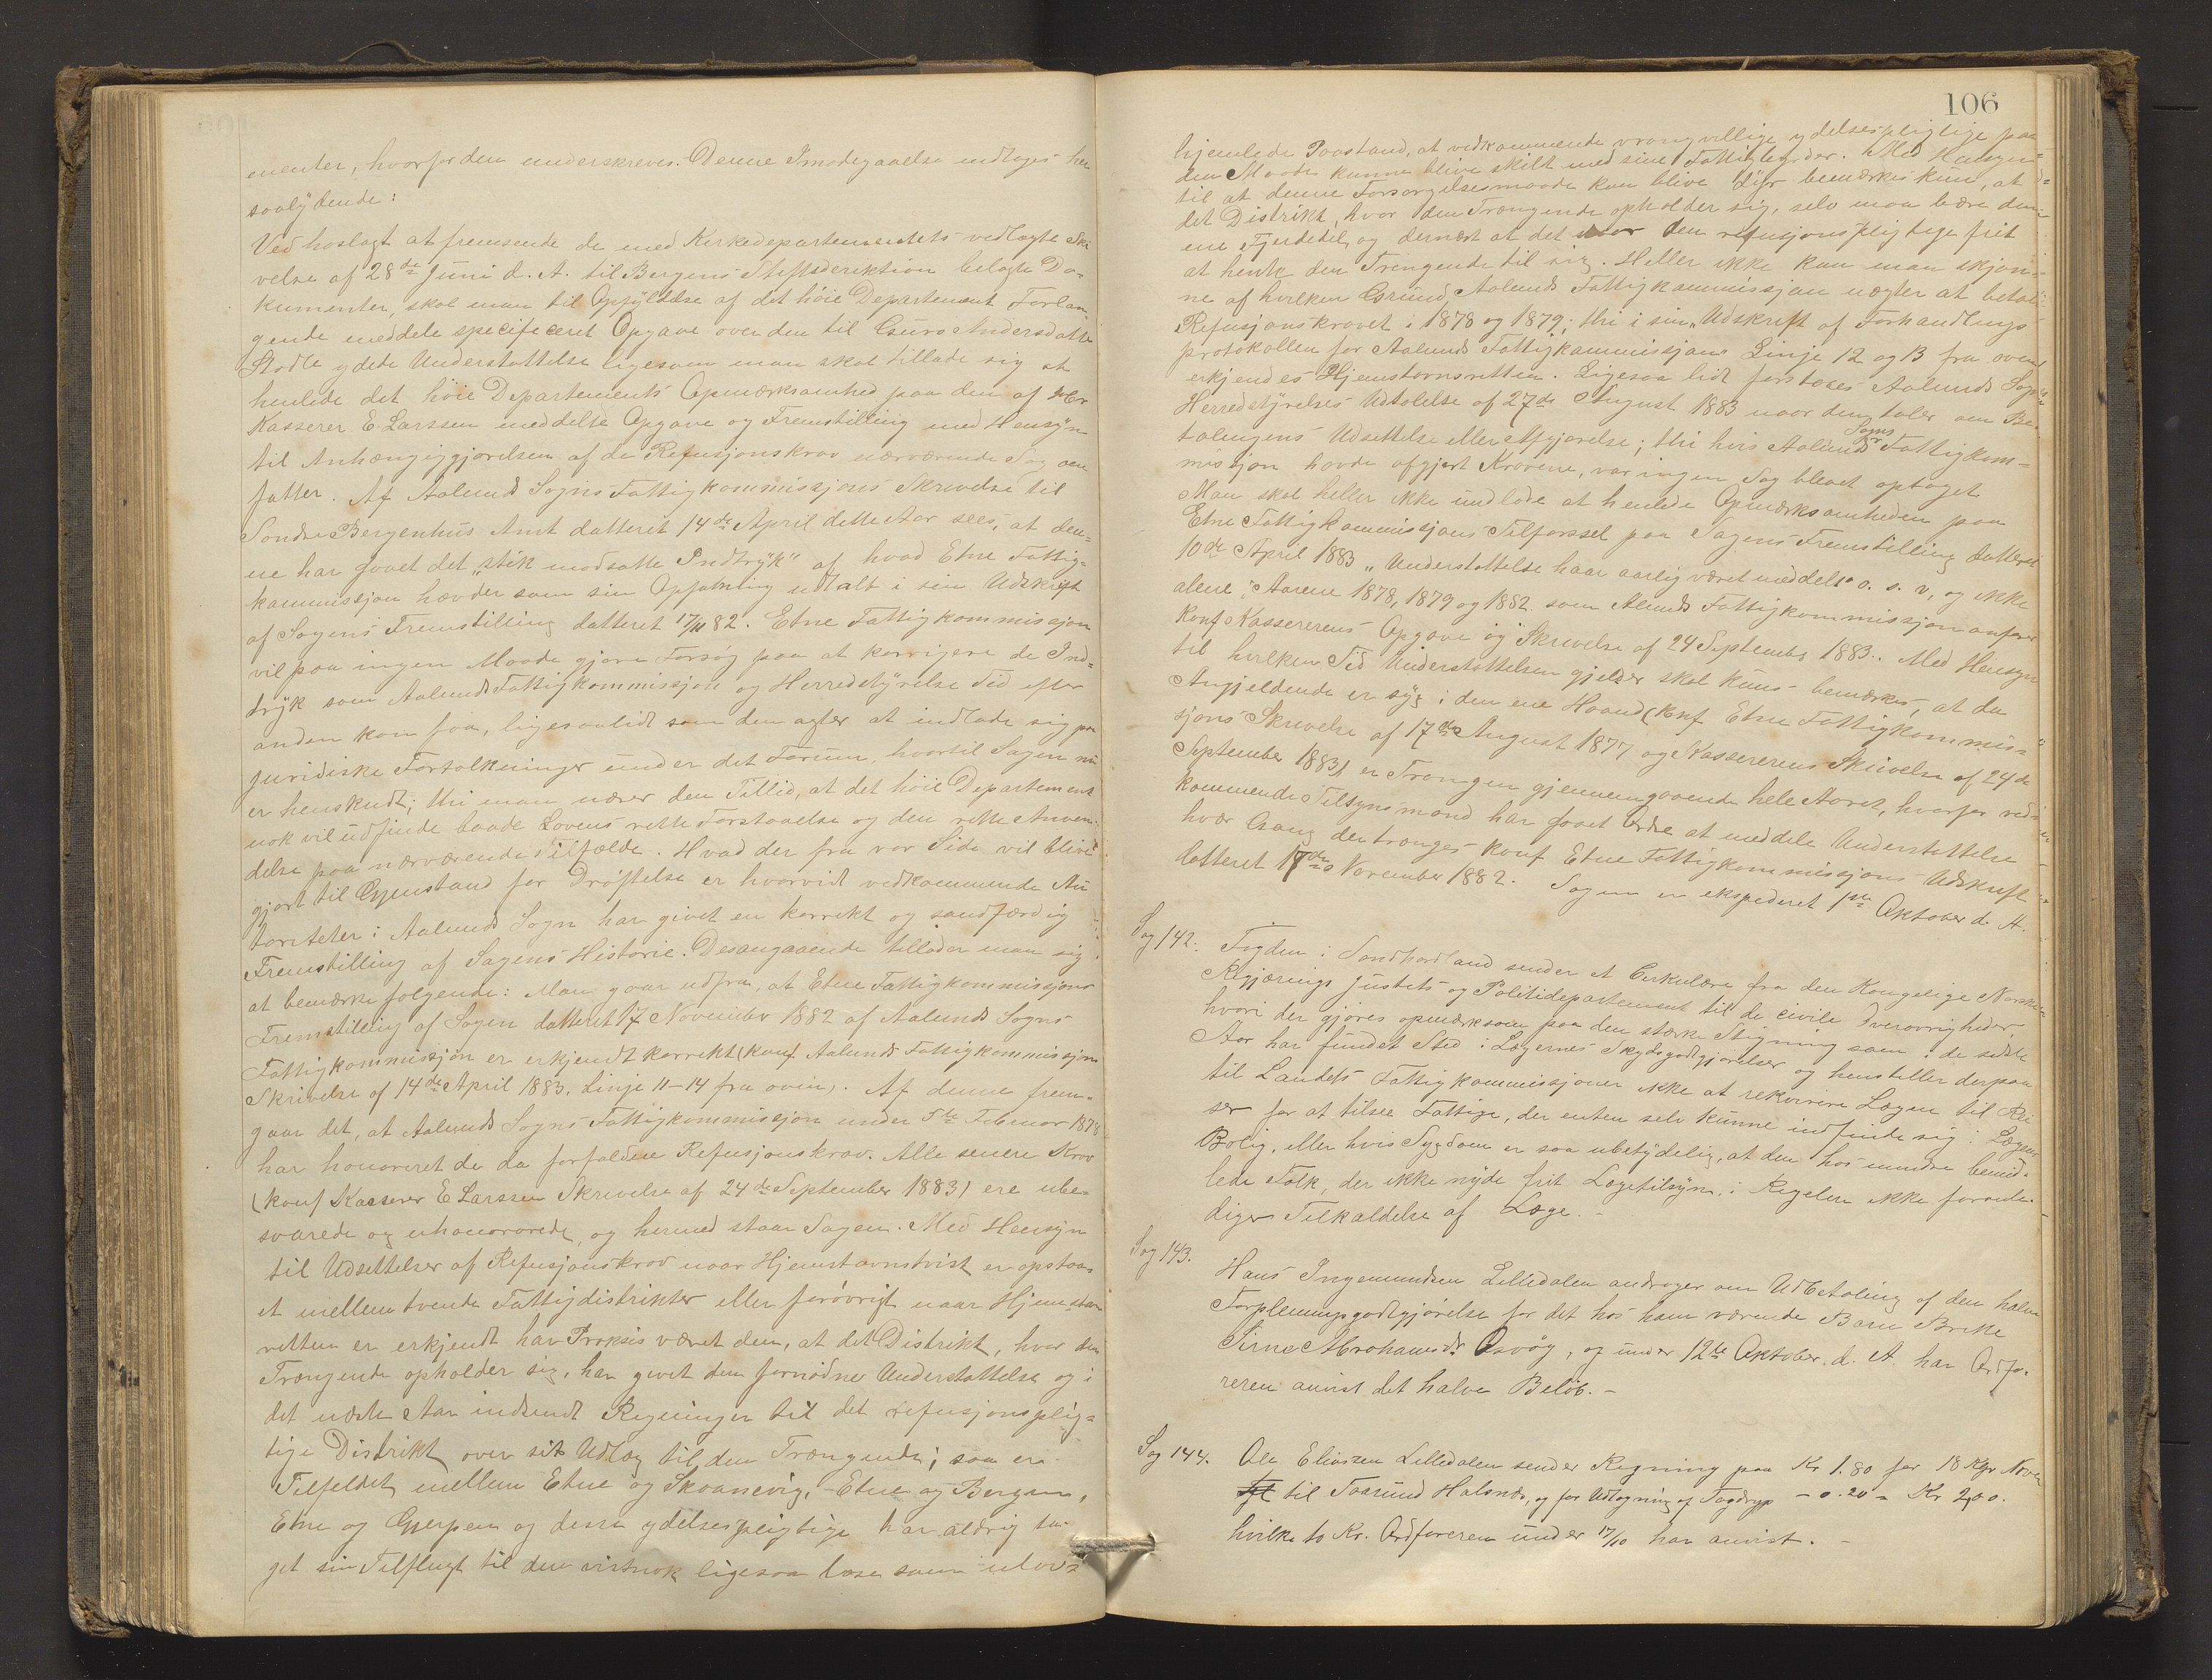 menter, hvorfor den underskreves. Denne Imodegaaelse indtoges her
saalydende:
Ved hoslagt at fremsende de med Kirkedepartementets vedlagte Skri
velse af 28de Juni d. A. til Bergens Stiftsdirektion belagte Do-
kumenter, skal man til Opfyldelse af det höie Departement Forlan
gende meddele specificeret Opgave over den til Guro Andersdatter
Stødle ydete Understøttelse ligesom man skal tillade sig at
henlede det höie Departements Opmærksomhed paa den af Hr
Kasserer E. Larssen meddelte Opgave og Fremstilling med Hensyn
til Anhængiggjørelsen af de Refusjonskrav nærværende Sag om
fatter. Af Aalunds Sogns Fattigkommissjons Skrivelse til
Søndre Bergenhus Amt datteret 14de April dette Aar sees, at den-
ne har faaet det „stik modsatte Indtryk" af hvad Etne Fattig-
kommissjon hævder som sin Opfatning udtalt i sin Udskrift
af Sagens Fremstilling datteret 17/11 82. Etne Fattigkommissjon
vil paa ingen Maade gjøre Forsøg paa at korrigere de Ind-
tryk som Aalunds Fattigkommissjon og Herredstyrelse Tid efter
anden kan faa, ligesaalidt som den agter at indlade sig paa
juridiske Fortolkninger under det Forum, hvortil Sagen nu
er henskudt; thi man nærer den Tillid, at det höie Departement
nok vil udfinde baade Lovens rette Forstaaelse og den rette Anven-
delse paa nærværende Tilfælde. Hvad der fra vor Side vil blive
gjort til Gjenstand for Drøftelse er hvorvidt vedkommende Au
toriteter i Aalunds Sogn har givet en korrekt og sandfærdig
Fremstilling af Sagens Historie. Desangaaende tillader man sig
at bemærke følgende: Man gaar udfra, at Etne Fattigkommissjons
Fremstilling af Sagen datteret 17 November 1882 af Aalunds Sogns
Fattigkommissjon er erkjendt korrekt (konf. Aalunds Fattigkommissjons
Skrivelse af 14de April 1883. Linje 11-14 fra oven). Af denne frem-
gaar det, at Aalunds Sogns Fattigkommissjon under 5te Februar 1878
har honoreret de da forfaldne Refusjonskrav. Alle senere Krav
(konf Kasserer E Larssen Skrivelse af 24de September 1883) ere ube-
svarede og uhonorerede, og hermed staar Sagen. Med Hensyn
til Udsettelser af Refusjonskrav naar Hjemstavnstvist er opstaa-
et mellem tvende Fattigdistrikter eller forövrigt naar Hjemstavns
retten er erkjendt har Praksis været den, at det Distrikt, hvor den
Trængende opholder sig, har givet den fornødne Understøttelse og i
det næste Aar indsendt Regninger til det refusjonsplig-
tige Distrikt over sit Udlæg til den Trængende; saa er
Tilfeldet mellem Etne og Skaanevig, - Etne og Bergen,
Etne og Gjerpen og desse ydelsespligtige har aldrig ta-
get sin Tilflugt til den vistnok ligesaa løse som ulov-
106
hjemlede Paastand, at vedkommende vrangvillige ydelsespligtige paa
den Maade kunne blive skilt med sine Fattigbyrder. Med Hensyn
til at denne Forsørgelsesmaade kan blive dyr bemærkes kun, at
det Distrikt, hvor den Trængende opholder sig, selv maa bære den
ene Fjerdedel, og dernæst at det staar den refusjonspligtige frit
at hente den Trengende til sig. Heller ikke kan man skjøn-
ne af hvilken Grund Aalunds Fattigkommissjon nægter at betale
Refusjonskravet i 1878 og 1879; thi i sin Udskrift af Forhandlings
protokollen for Aalunds Fattigkommissjons Linje 12 og 13 fra oven
erkjendes Hjemstavnsretten. Ligesaa lidt forstaaes Aalunds Sogns
Herredstyrelses Udtalelse af 27de August 1883 naar den taler om Be-
talingens Udsettelse eller Afgjørelse; thi hvis Aalunds Sogns Fattigkom-
missjon havde afgjort Kravene, var ingen Sag blevet optaget.
Man skal heller ikke undlade at henlede Opmærksomheden paa
Etne Fattigkommissjons Tilførsel paa Sagens Fremstilling datteret
10de April 1883 „Understøttelse haar aarlig været meddelt" o. s. v, og ikke
alene i Aarene 1878, 1879 og 1882. som Alunds Fattigkommissjon anfører
konf Kassererens Opgave og Skrivelse af 24 September 1883.. Med Hensyn
til hvilken Tid Understøttelsen gjelder skal kuns bemærkes, at da
Angjeldende er syg i den ene Haand (konf. Etne Fattigkommis-
sjons Skrivelse af 17de August 1877 og Kassererens Skrivelse af 24de
September 1883) er Trangen gjennemgaaende hele Aaret, hvorfor ved-
kommende Tilsynsmand har faaet Ordre at meddele Understøttelse
hver Gang der tranges konf Etne Fattigkommissjons Udskrift
datteret 17de November 1882. Sagen er ekspederet 1ste Oktober d. A.
Sag 142. Fogden i Søndhordland sender et Cirkulære fra den Kongelige Norske
Regjærings Justits og Politidepartement til de civile Overøvrigheder,
hvori der gjøres opmærksom paa den stærke Stigning som i de sidste
Aar har fundet Sted i Lægernes Skydsgodtgjørelser og henstiller derpaa
til Landets Fattigkommissjoner ikke at rekvirere Lægen til Rei
ser for at tilsee Fattige, der enten selv kunne indfinde sig i Lægens
Bolig, eller hvis Sygdom er saa ubetydelig, at den hos mindre bemid-
lede Folk, der ikke nyde frit Lægetilsyn, i Regelen ikke foranle-
diger Tilkaldelse af Læge. -
Sag 143. Hans Ingemundsen Lilledalen andrager om Udbetaling af den halve
Forpleiningsgodtgjörelse for det hos ham værende Barn Brite
Sirine Abrahamsdr Osvåg, og under 12te Oktober d. A. har Ordfø-
reren anvist det halve Beløb. -
Sag 144. Ole Eliassen Lilledalen sender Regning paa Kr 1.80 for 18 Kgr
til Taarund Halsnæ, og for Udlægning af Tagdryp - 0.20 - Kr 2,00.
hvilke to Kr. Ordføreren under 17/10 har anvist. -